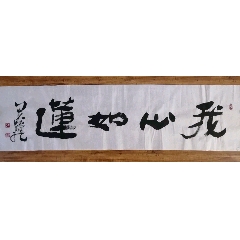 我心如蓮